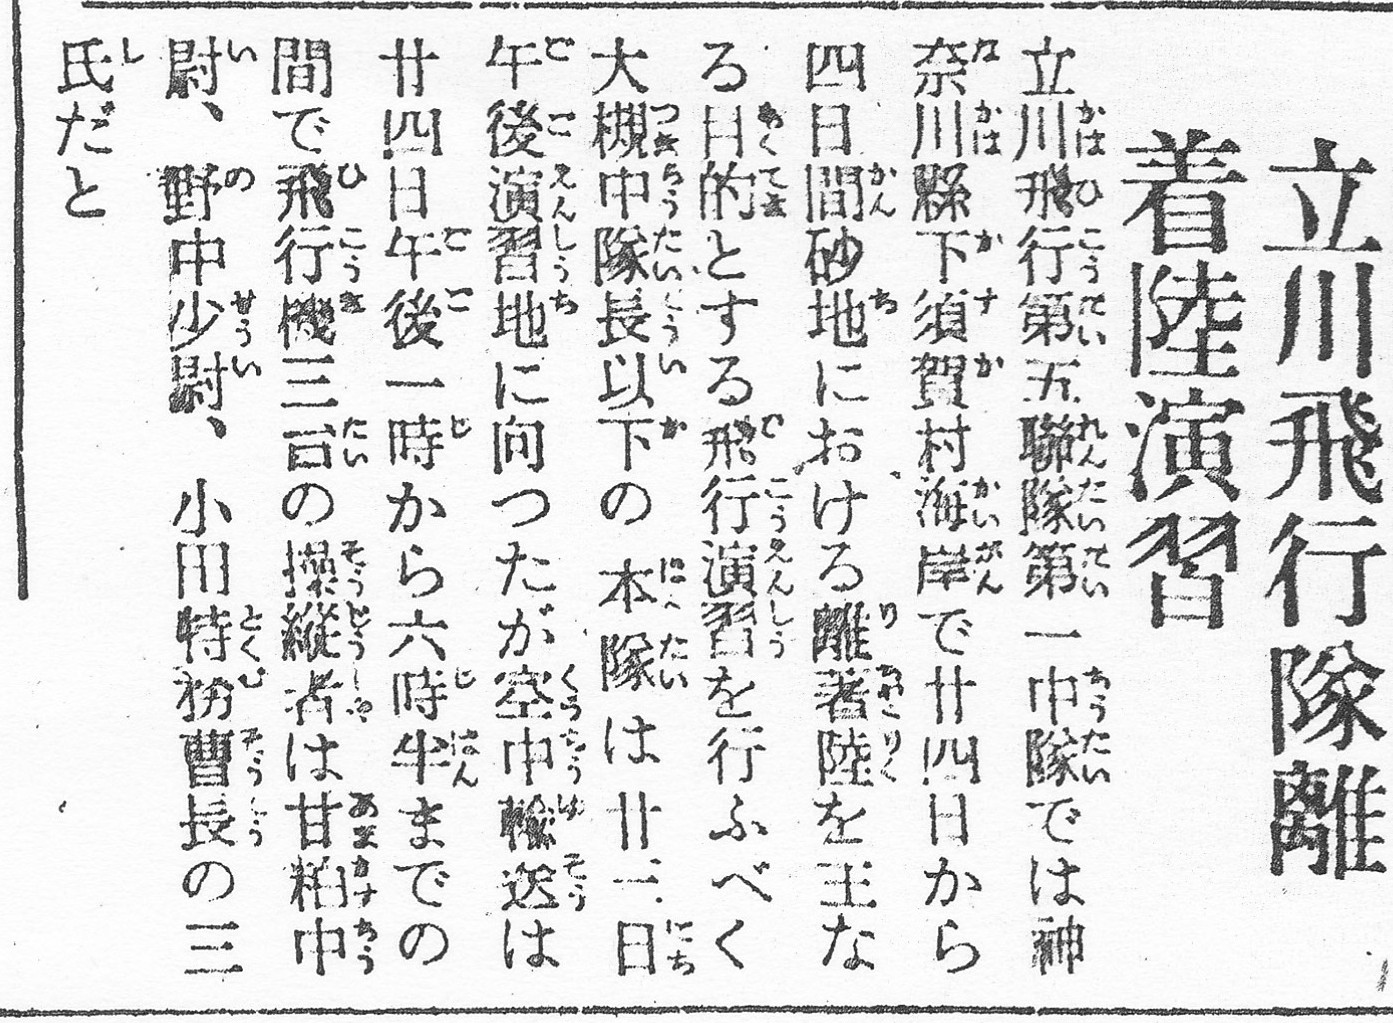 立川飛行隊離
着陸演習
立川飛行第五聯隊第一中隊では神
奈川縣下須賀村海岸で廿四日から
四日間砂地における離著陸を主な
る目的とする飛行演習を行ふべく
大槻中隊長以下の本隊は廿三日
午後演習地に向つたが空中輸送は
廿四日午後一時から六時半までの
間で飛行機三台の操縦者は甘粕中
尉、野中少尉、小田特務曹長の三
氏だと